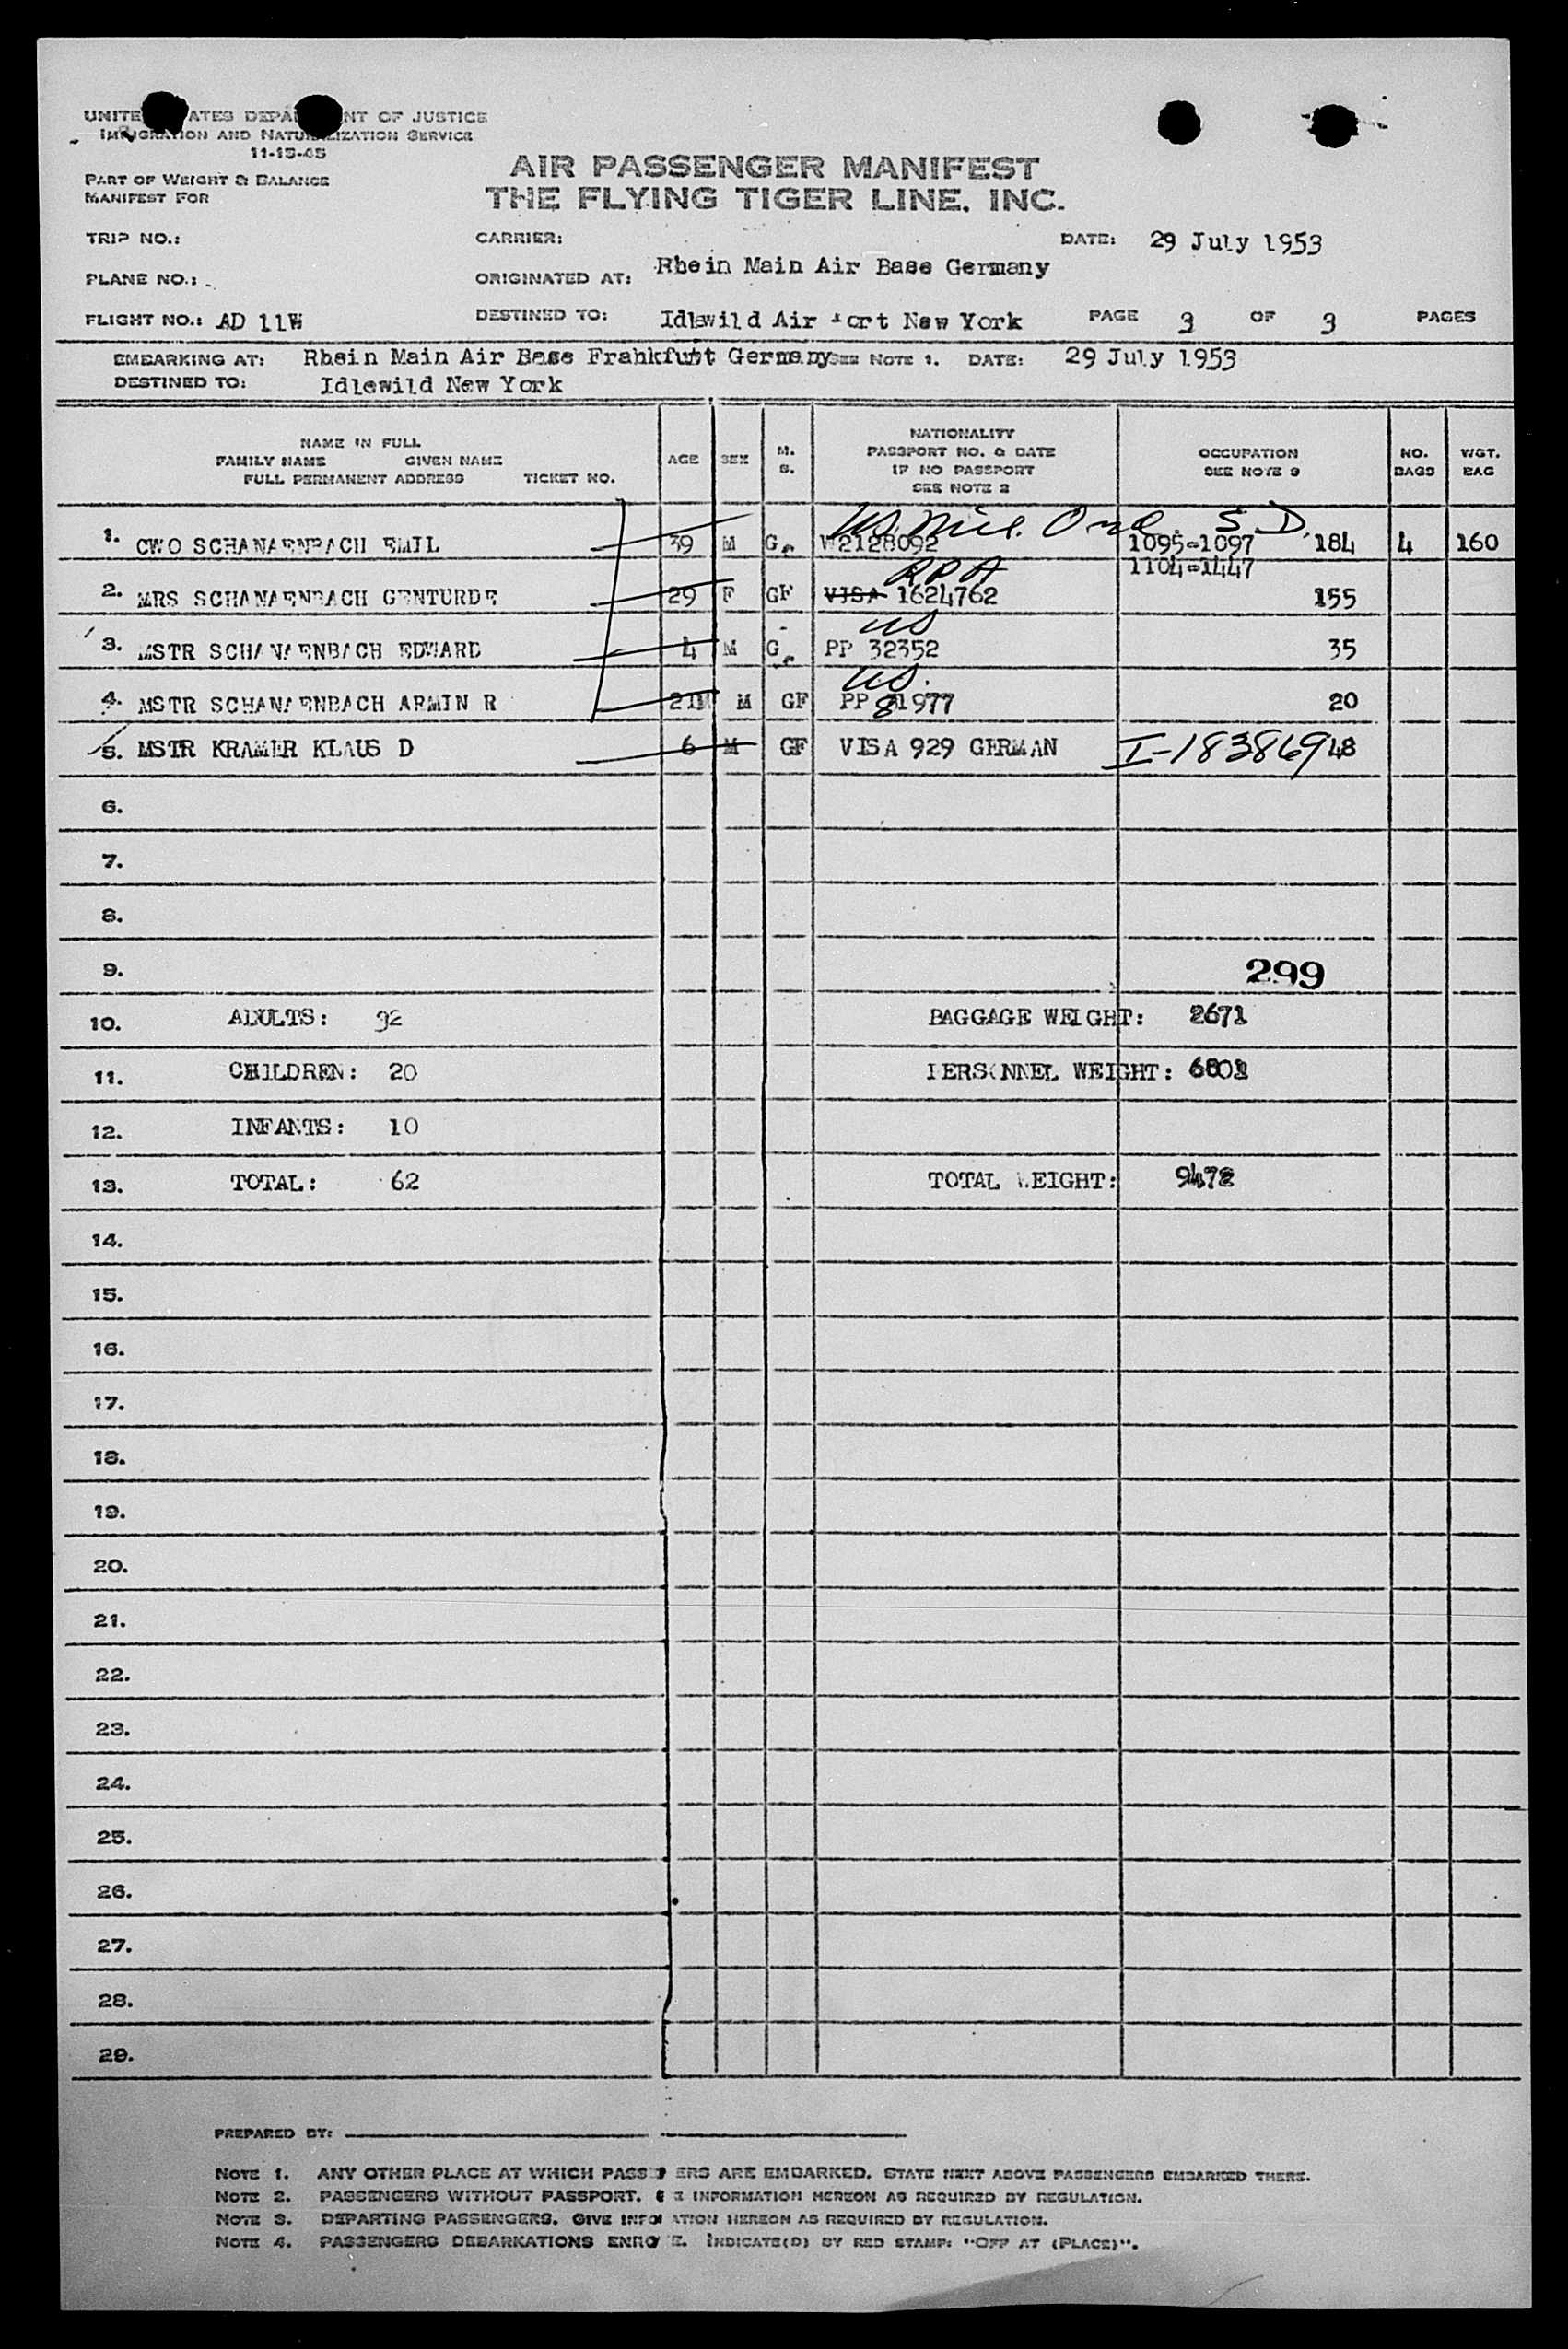 UNITE ATES DEPA NT OF JUSTICE
IMMIGRATION AND NATURALIZATION SERVICE
11-15-45
PART OF WEIGHT & BALANCE
MANIFEST FOR
AIR PASSENGER MANIFEST
THE FLYING TIGER LINE, INC.
TRIP NO.: CARRIER: DATE: 29 July 1953
PLANE NO.: ORIGINATED AT: Rhein Main Air Base Germany
FLIGHT NO.: AD 11W DESTINED TO: Idlewild Air Port New York PAGE 3 OF 3 PAGES
EMBARKING AT: Rhein Main Air Base Frahkfurt Germany SEE NOTE 1. DATE: 29 July 1953
DESTINED TO: Idlewild New York
NAME IN FULL
FAMILY NAME GIVEN NAME
FULL PERMANENT ADDRESS TICKET NO.
AGE SEX M. S.
NATIONALITY
PASSPORT NO. & DATE
IF NO PASSPORT
SEE NOTE 2
OCCUPATION
SEE NOTE 3
NO. BAGS
WGT. BAG
US Mil. Ord S.D.
1. CWO SCHANAENBACH EMIL 39 M G W2128092 1095-1097 184 4 160
1104-1447
RPA
2. MRS SCHANAENBACH GENTURDE 29 F GF VISA 1624762 155
US
3. MSTR SCHANAENBACH EDWARD 4 M G PP 32352 35
US.
4. MSTR SCHANAENBACH ARMIN R 21M M GF PP 81977 20
5. MSTR KRAMER KLAUS D 6 M GF VISA 929 GERMAN I-183869 48
6.
7.
8.
9. 299
10. ADULTS: 32 BAGGAGE WEIGHT: 2671
11. CHILDREN: 20 PERSONNEL WEIGHT: 6801
12. INFANTS: 10
13. TOTAL: 62 TOTAL WEIGHT: 9472
14.
15.
16.
17.
18.
19.
20.
21.
22.
23.
24.
25.
26.
27.
28.
29.
PREPARED BY:
NOTE 1. ANY OTHER PLACE AT WHICH PASS ERS ARE EMBARKED. STATE NEXT ABOVE PASSENGERS EMBARKED THERE.
NOTE 2. PASSENGERS WITHOUT PASSPORT. GIVE INFORMATION HEREON AS REQUIRED BY REGULATION.
NOTE 3. DEPARTING PASSENGERS. GIVE INFORMATION HEREON AS REQUIRED BY REGULATION.
NOTE 4. PASSENGERS DEBARKATIONS ENROUTE. INDICATE(D) BY RED STAMP: "OFF AT (PLACE)".